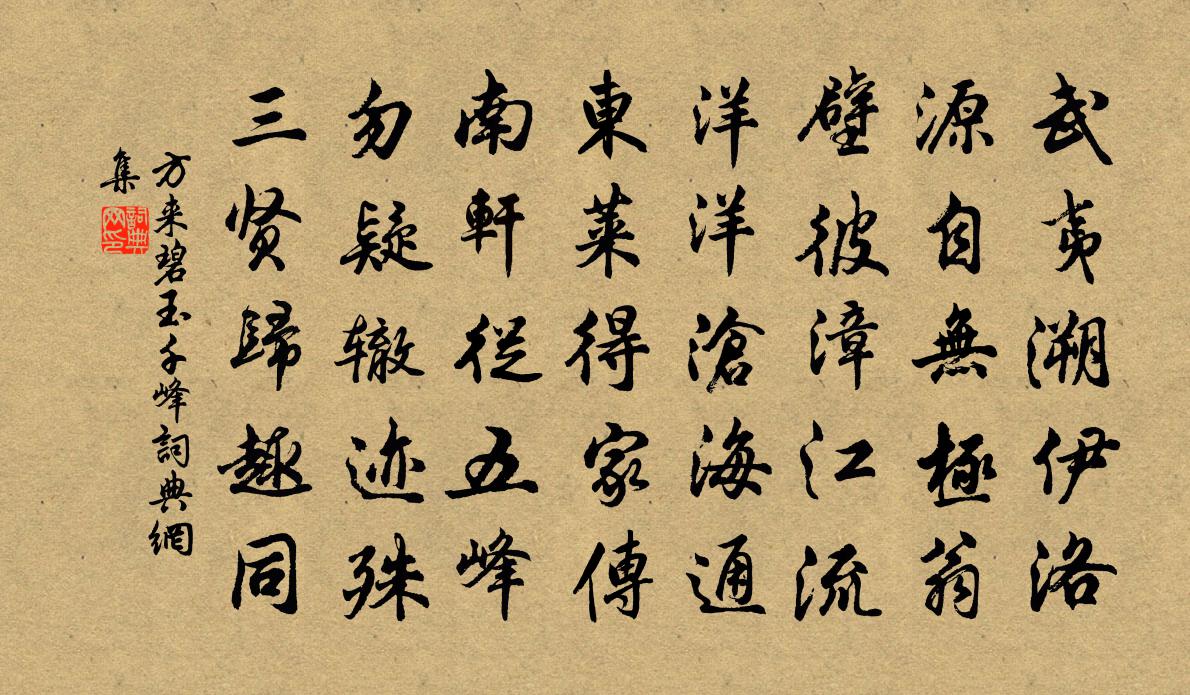 武夷溯伊洛
源自無極翁
壁彼漳江流
洋洋滄海通
東萊得家傳
南軒從五峰
勿疑辙迹殊
三贤歸趣同
方来碧玉千峰詞典網
集
詞典
网印